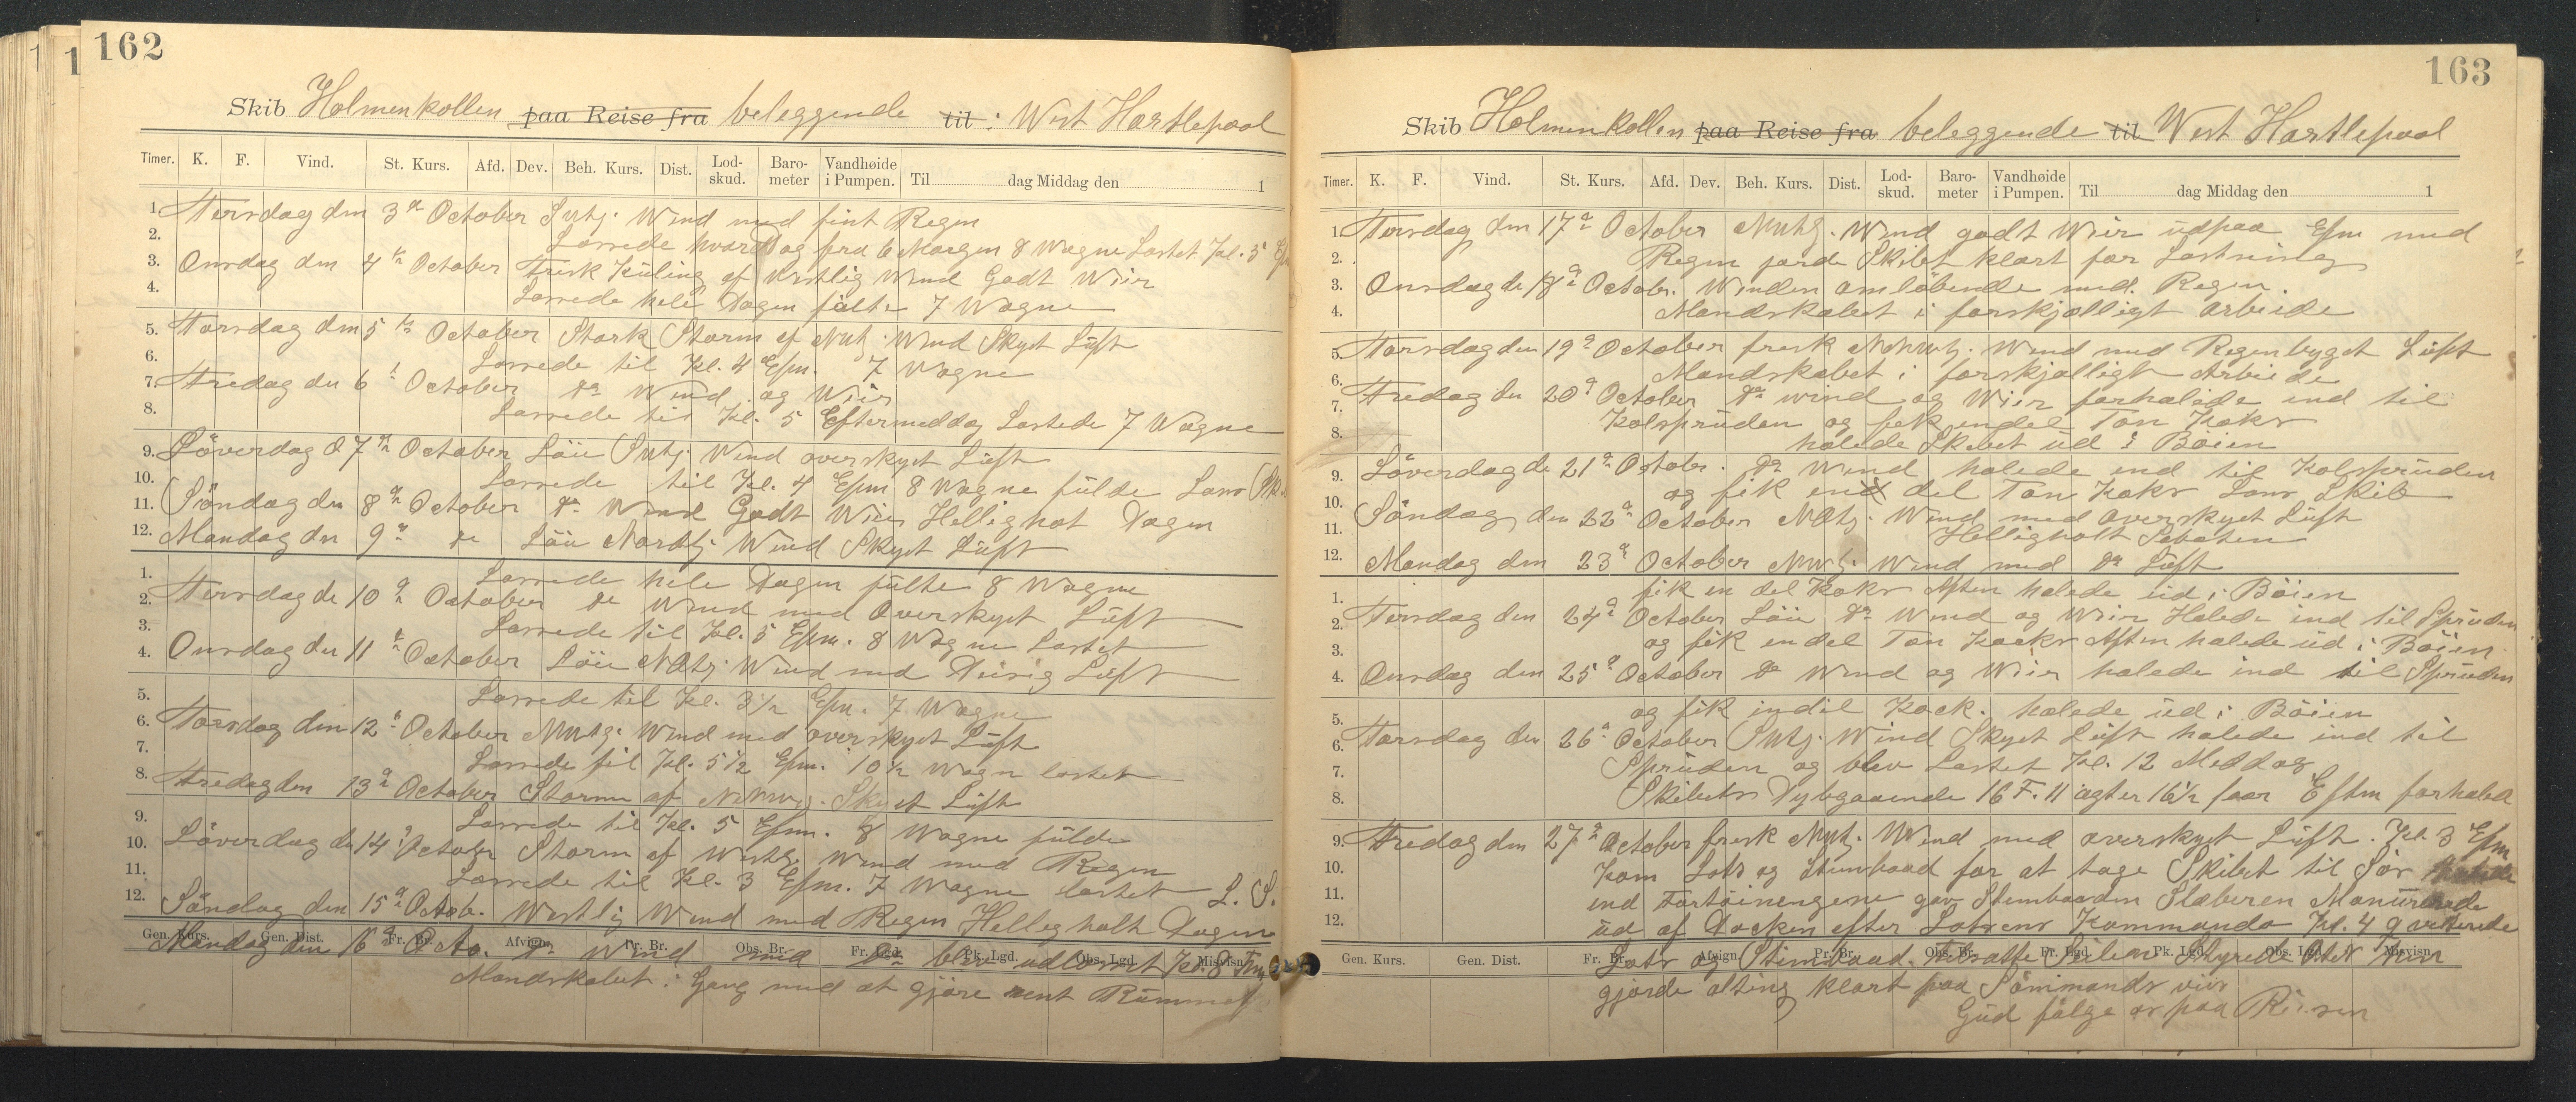 162
Skib Holmenkollen paa Reise fra beleggende til : West Hartlepool
Timer. K. F. Vind. St. Kurs. Afd. Dev. Beh. Kurs. Dist. Lod-skud. Baro-meter Vandhøide i Pumpen. Til dag Middag den 1
1. Tirsdag den 3de October Svtl. Wind med fint Regn
2. Lossede hvardag fra 6 Morgen 8 Wagne Lastet Kl. 5 Efm
3. Onsdag den 4de October Frisk Kuling af Vestlig Wind Godt Weir
4. Lossede hele Dagen fulte 7 Wagne
5. Torsdag den 5te October Stærk Storm af Nvtl. Wind Skyet Lüft
6. Lossede til Kl. 4 Efm. 7 Wagne
7. Fredag den 6te October do Wind og Weir
8. Lossede til Kl. 5 Eftermeddag Lastede 7 Wagne
9. Löverdag d 7de October Löu Svtl. Wind overskyet Lüft
10. Lossede til Kl. 4 Efm 8 Wagne fulde
11. Söndag den 8de October do Wind Godt Weir Hellighot Dagen
12. Mandag den 9de do Löu Nordlig Wind Skyet Lüft
1. Lossede hele Dagen fulte 8 Wagne
2. Tirsdag de 10de October do Wind med Overskyet Lüft
3. Lossede til Kl. 5 Efm. 8 Wagne Lastet
4. Onsdag den 11te October Löu NOtl. Wind med Deisig Lüft
5. Lossede til Kl. 3 1/2 Efm. 7 Wagne
6. Torsdag den 12te October Nvtl. Wind med overskyet Lüft
7. Lossede til Kl. 5 1/2 Efm. 10 1/2 Wagn lastet
8. Fredag den 13de October Storm af NNvtl. Skyet Lüft
9. Lossede til Kl. 5 Efm. 8 Wagne fulde
10. Löverdag de 14de October Storm af Westl. Wind med Regn
11. Lossede til Kl. 3 Efm. 7 Wagne lastet L. S.
12. Söndag den 15de Octob. Westlig Wind med Regn Hellegholt Dagen
Gen. Kurs. Gen. Dist. Fr. Br. Afvign. Pr. Br. Obs. Br. Fr. Lgd. Pk. Lgd. Obs. Lgd. Misvisn.
Mandag den 16de Octo. do Wind med do blev udlosset Kl. 8 Fm
Mandskabet i Gang med at gjøre rent Rummet
163
Skib Holmenkollen paa Reise fra beleggende til West Hartlepool
Timer. K. F. Vind. St. Kurs. Afd. Dev. Beh. Kurs. Dist. Lod-skud. Baro-meter Vandhøide i Pumpen. Til dag Middag den 1
1. Tirsdag den 17de October Nvtl. Wind godt Weir udpaa Efm med
2. Regn jorde Skibet klart for Lastning
3. Onsdag de 18de Octobr. Winden omløbende med Regn.
4. Mandskabet i forskjælligt arbeide
5. Torsdag den 19de October frisk NNvtl. Wind med Regenbyget Lüft
6. Mandskabet i forskjælligt Arbeide
7. Fredag den 20de October do wind og Weir forhalede ind til
8. Kolspruden og fek endel Ton Koks
halede Skibet ud i Böien
9. Löverdag de 21de Octobr. do Wind halede ind til Kolspruden
10. og fik en del Ton Koks Lons Skib
11. Söndag den 22de October NOtl. Wind med overskyet Lüft
Helligholt Sabaten
12. Mandag den 23de October Nvtl. Wind med do Lüft
1. fik en del Koks Aften halede ud i Böien
2. Tirsdag den 24de October Löu do Wind og Weir Halede ind til Spruden
3. og fik endel Ton Kocks Aften halede ud i Böien
4. Onsdag den 25de October do Wind og Weir halede ind til Spruden
5. og fik indil Kock. halede ud i Böien
6. Torsdag den 26de October Svtl. Wind Skyet Lüft halede ind til
7. Spruden og blev Lastet Kl. 12 Meddag
8. Skibets Dybgaaende 16 F. 11 agter 16 1/2 foor Eftm forhaled
9. Fredag den 27de October frisk Nvt. Wind med overskyet Lüft. Kl. 3 Efm
10. Kom Lods og Stembaad for at tage Skibet til Sös
11. end Fortöiningene gav Stembaaden Slæberen Manurerede
12. ud af Docken efter Lotsens Kommando Kl. 4 qvitterede
Gen. Kurs. Gen. Dist. Fr. Br. Afvign. Pr. Br. Obs. Br. Fr. Lgd. Pk. Lgd. Obs. Lgd. Misvisn.
Lots og Stembaad. tilsatte Seilene Styrede
gjorde alting klart paa Sömmands viis
Gud fölge os paa Reisen